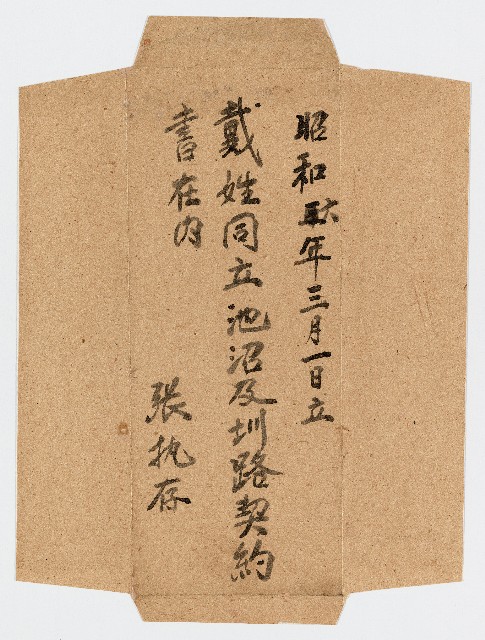 昭和年三月一日立
戴姓同立池沼及圳路契約
書在内
張执存